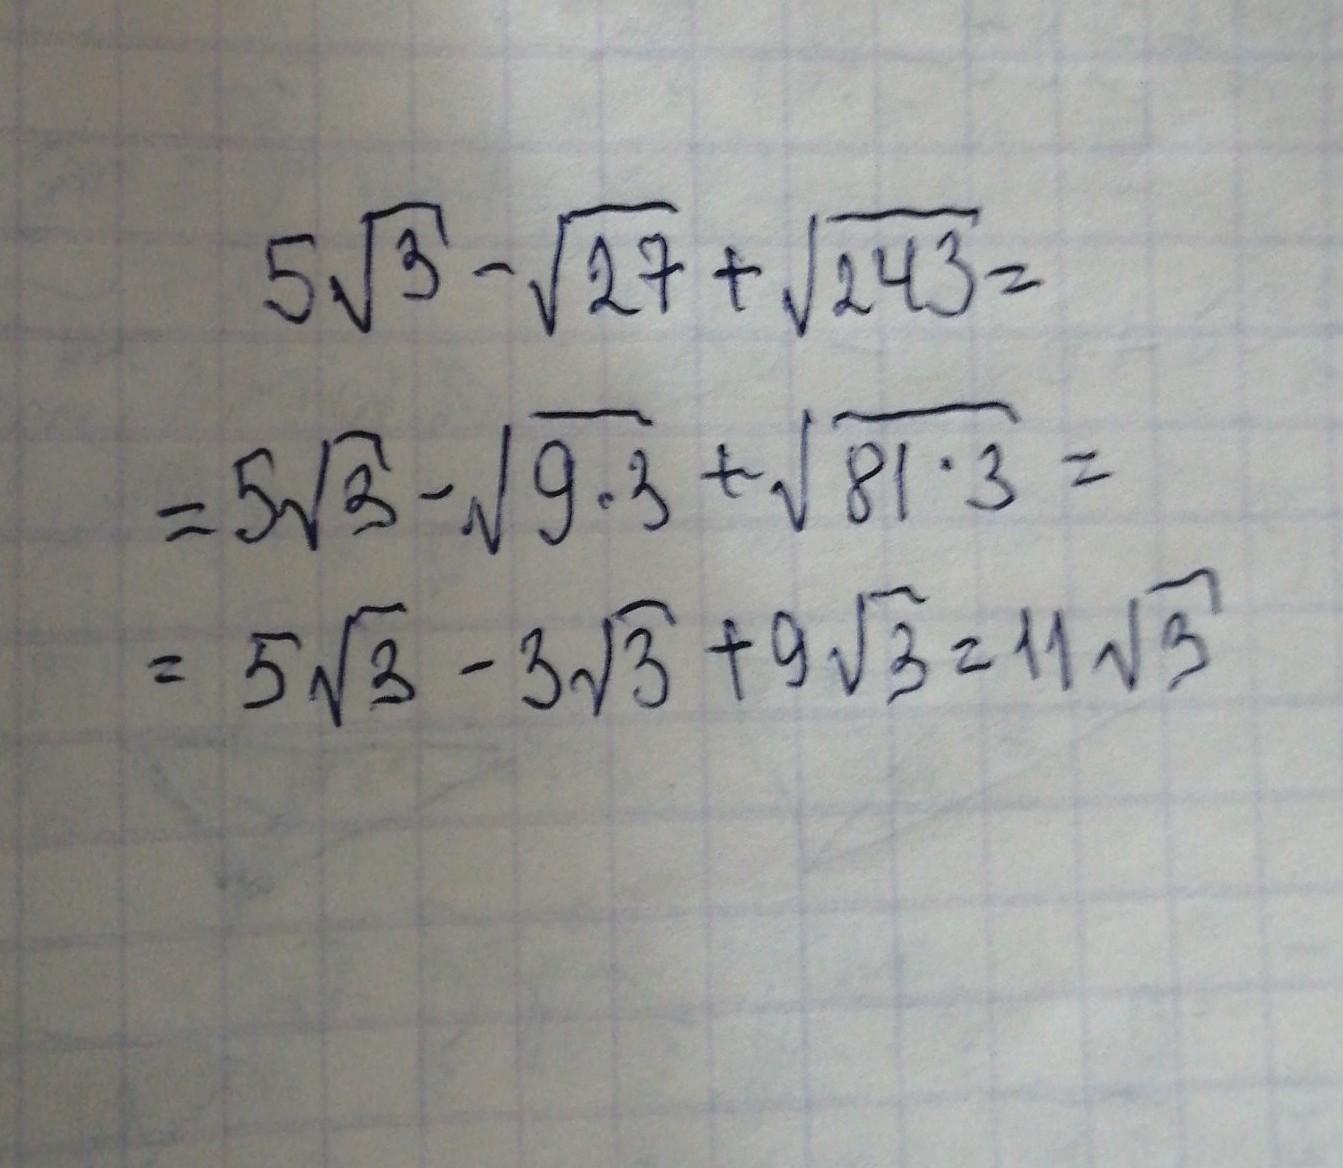 5√3 - √27 + √243 =
= 5√3 - √9·3 + √81·3 =
= 5√3 - 3√3 + 9√3 = 11√3